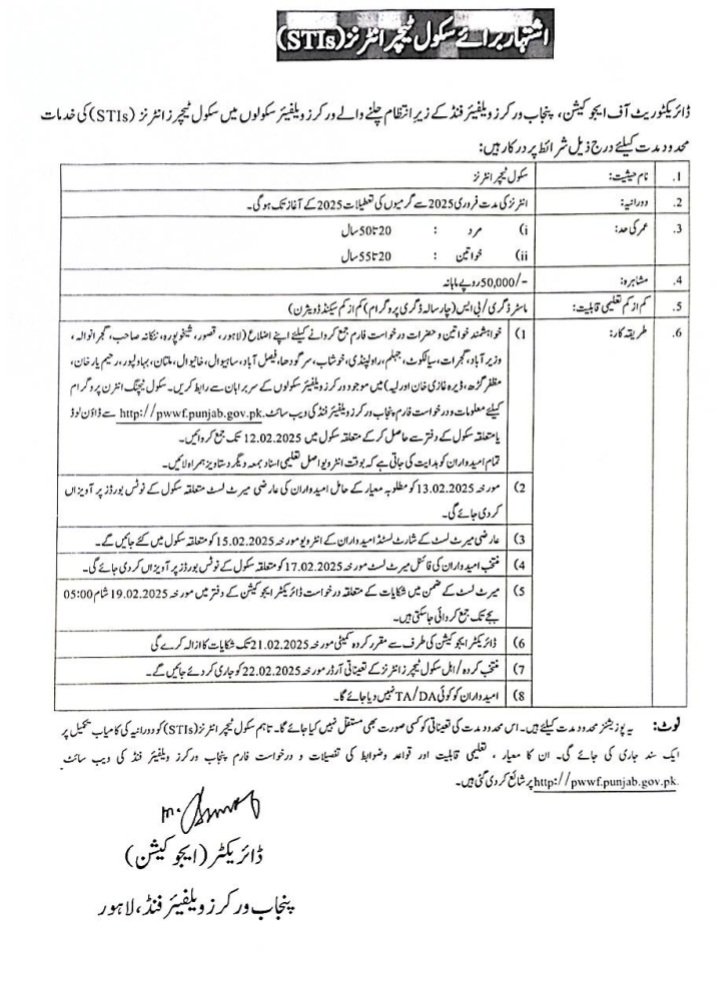 اشتہار برائے سکول ٹیچر انٹرنز (STIs)
ڈائریکٹوریٹ آف ایجوکیشن، پنجاب ورکرز ویلفیئر فنڈ کے زیر انتظام چلنے والے ورکرز ویلفیئر سکولوں میں سکول ٹیچرز انٹرنز (STIs) کی خدمات
محدود مدت کیلئے درج ذیل شرائط پر درکار ہیں:
1. نام حیثیت: سکول ٹیچر انٹرنز
2. دورانیہ: انٹرنز کی مدت فروری 2025 سے گرمیوں کی تعطیلات 2025 کے آغاز تک ہوگی۔
3. عمر کی حد: i) مرد : 20 تا 50 سال
ii) خواتین : 20 تا 55 سال
4. مشاہرہ: 50,000/- روپے ماہانہ
5. کم از کم تعلیمی قابلیت: ماسٹر ڈگری/بی ایس (چار سالہ ڈگری پروگرام) کم از کم سیکنڈ ڈویژن)
6. طریقہ کار: 1) خواہشمند خواتین و حضرات درخواست فارم جمع کروانے کیلئے اپنے اضلاع (لاہور، قصور، شیخوپورہ، ننکانہ صاحب، گجرانوالہ،
وزیر آباد، گجرات، سیالکوٹ، جہلم، راولپنڈی، خوشاب، سرگودھا، فیصل آباد، ساہیوال، خانیوال، ملتان، بہاولپور، رحیم یار خان،
مظفر گڑھ، ڈیرہ غازی خان اور لیہ) میں موجود ورکرز ویلفیئر سکولوں کے سربراہان سے رابطہ کریں۔ سکول ٹیچنگ انٹرن پروگرام
کیلئے معلومات و درخواست فارم پنجاب ورکرز ویلفیئر فنڈ کی ویب سائٹ http://pwwf.punjab.gov.pk. سے ڈاؤن لوڈ
یا متعلقہ سکول کے دفتر سے حاصل کر کے متعلقہ سکول میں 12.02.2025 تک جمع کروائیں۔
تمام امیدواران کو ہدایت کی جاتی ہے کہ بوقت انٹرویو اصل تعلیمی اسناد بمعہ دیگر دستاویز ہمراہ لائیں۔
2) مورخہ 13.02.2025 کو مطلوبہ معیار کے حامل امیدواران کی عارضی میرٹ لسٹ متعلقہ سکول کے نوٹس بورڈز پر آویزاں
کر دی جائے گی۔
3) عارضی میرٹ لسٹ کے شارٹ لسٹڈ امیدواران کے انٹرویو مورخہ 15.02.2025 کو متعلقہ سکول میں کئے جائیں گے۔
4) منتخب امیدواران کی فائنل میرٹ لسٹ مورخہ 17.02.2025 کو متعلقہ سکول کے نوٹس بورڈز پر آویزاں کر دی جائے گی۔
5) میرٹ لسٹ کے ضمن میں شکایات کے متعلقہ درخواست ڈائریکٹر ایجوکیشن کے دفتر میں مورخہ 19.02.2025 شام 05:00
بجے تک جمع کروائی جاسکتی ہیں۔
6) ڈائریکٹر ایجوکیشن کی طرف سے مقرر کردہ کمیٹی مورخہ 21.02.2025 تک شکایات کا ازالہ کرے گی
7) منتخب کردہ/اہل سکول ٹیچرز انٹرنز کے تعیناتی آرڈر مورخہ 22.02.2025 کو جاری کر دئے جائیں گے۔
8) امیدواران کو کوئی TA/DA نہیں دیا جائے گا۔
نوٹ: یہ پوزیشنز محدود مدت کیلئے ہیں۔ اس محدود مدت کی تعیناتی کو کسی صورت بھی مستقل نہیں کیا جائے گا۔ تاہم سکول ٹیچر انٹرنز (STIs) کو دورانیہ کی کامیاب تکمیل پر
ایک سند جاری کی جائے گی۔ ان کا معیار، تعلیمی قابلیت اور قواعد و ضوابط کی تفصیلات و درخواست فارم پنجاب ورکرز ویلفیئر فنڈ کی ویب سائٹ
http://pwwf.punjab.gov.pk. پر شائع کر دی گئی ہیں۔
ڈائریکٹر (ایجوکیشن)
پنجاب ورکرز ویلفیئر فنڈ، لاہور